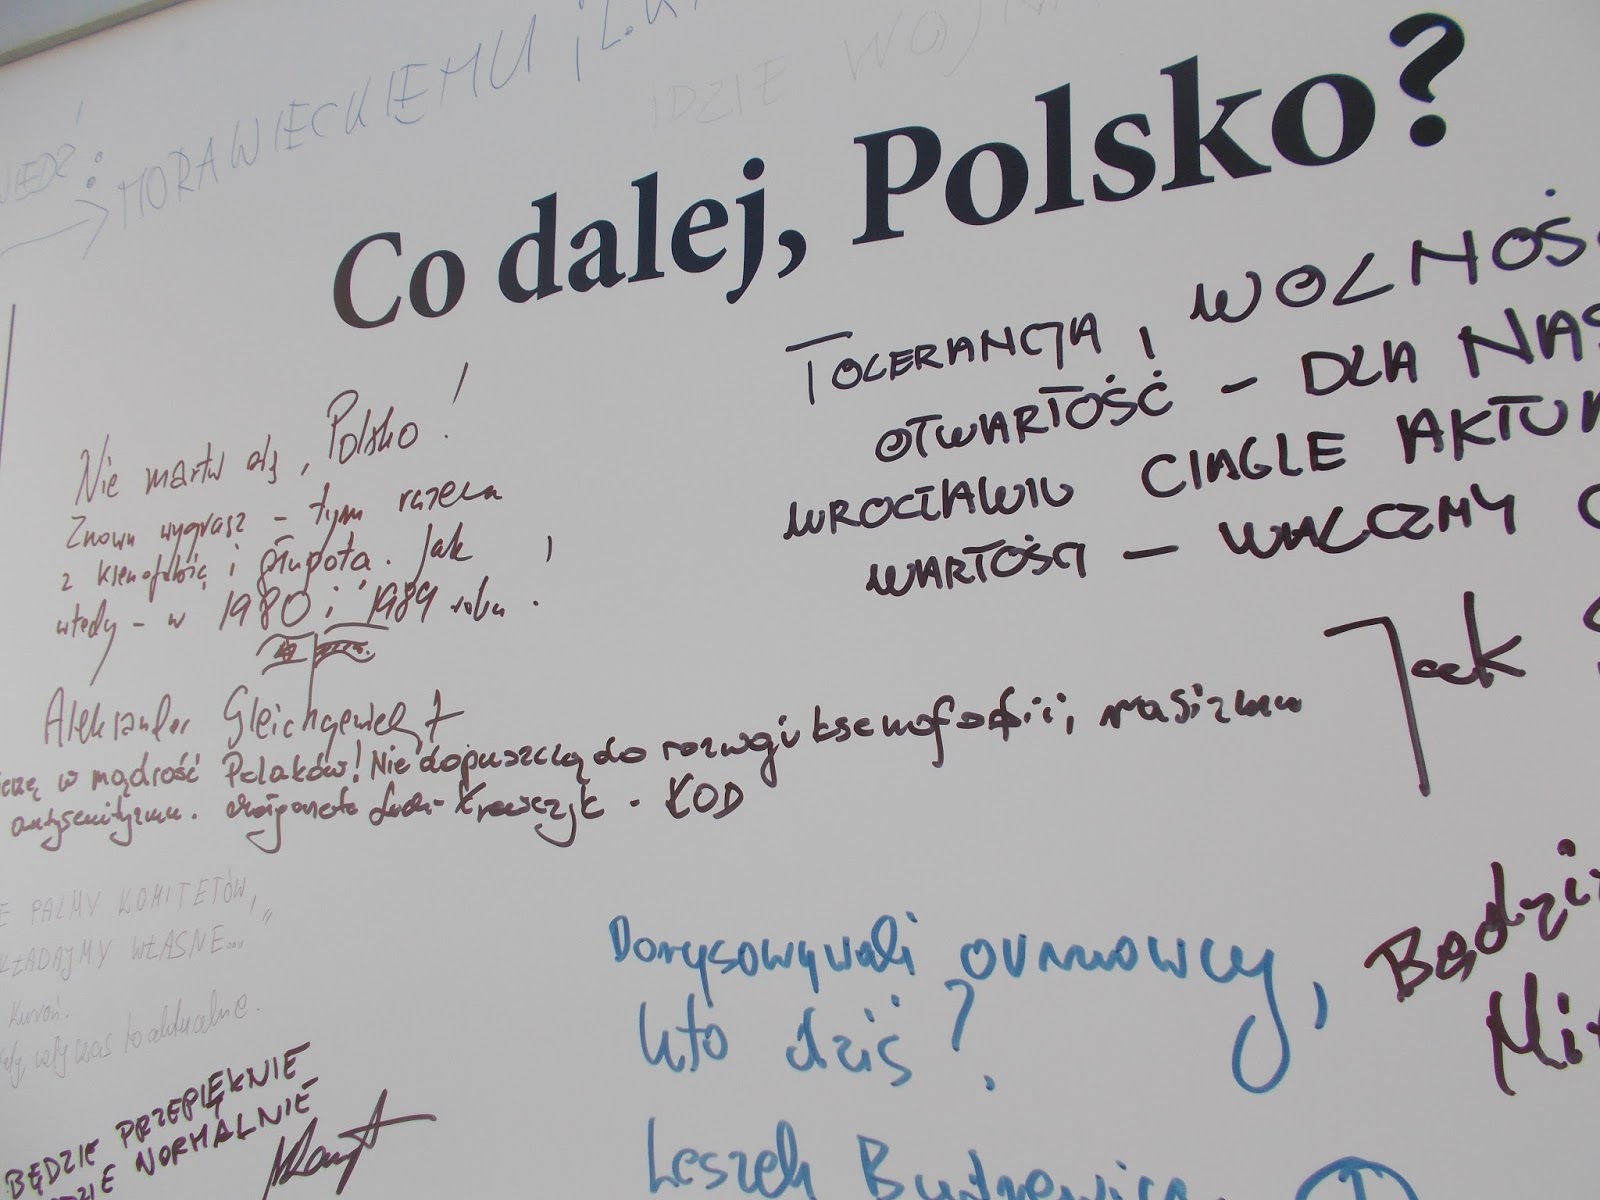 MORAWIECKIEMU i
IDZIE WOJNA
Co dalej, Polsko?
TOLERANCJA, WOLNOŚ
OTWARTOŚĆ - DLA NAS
WROCŁAWIU CIĄGLE AKTU
WARTOŚCI - WALCZMY O
Jacek
Nie martw się, Polsko!
Znowu wygrasz - tym razem
z ksenofobią i głupotą. Jak
wtedy - w 1980 i 1989 roku.
Aleksander Gleichgewicht
w mądrość Polaków! Nie dopuszczą do rozwoju ksenofobii, rasizmu
antysemityzmu. Małgorzata Krawczyk - KOD
PALMY KOMITETÓW,
WŁASNE..."
Kuroń.
cały czas to aktualne.
BĘDZIE PRZEPIĘKNIE
NORMALNIE
Dorysowywali
Kto dziś?
Leszek